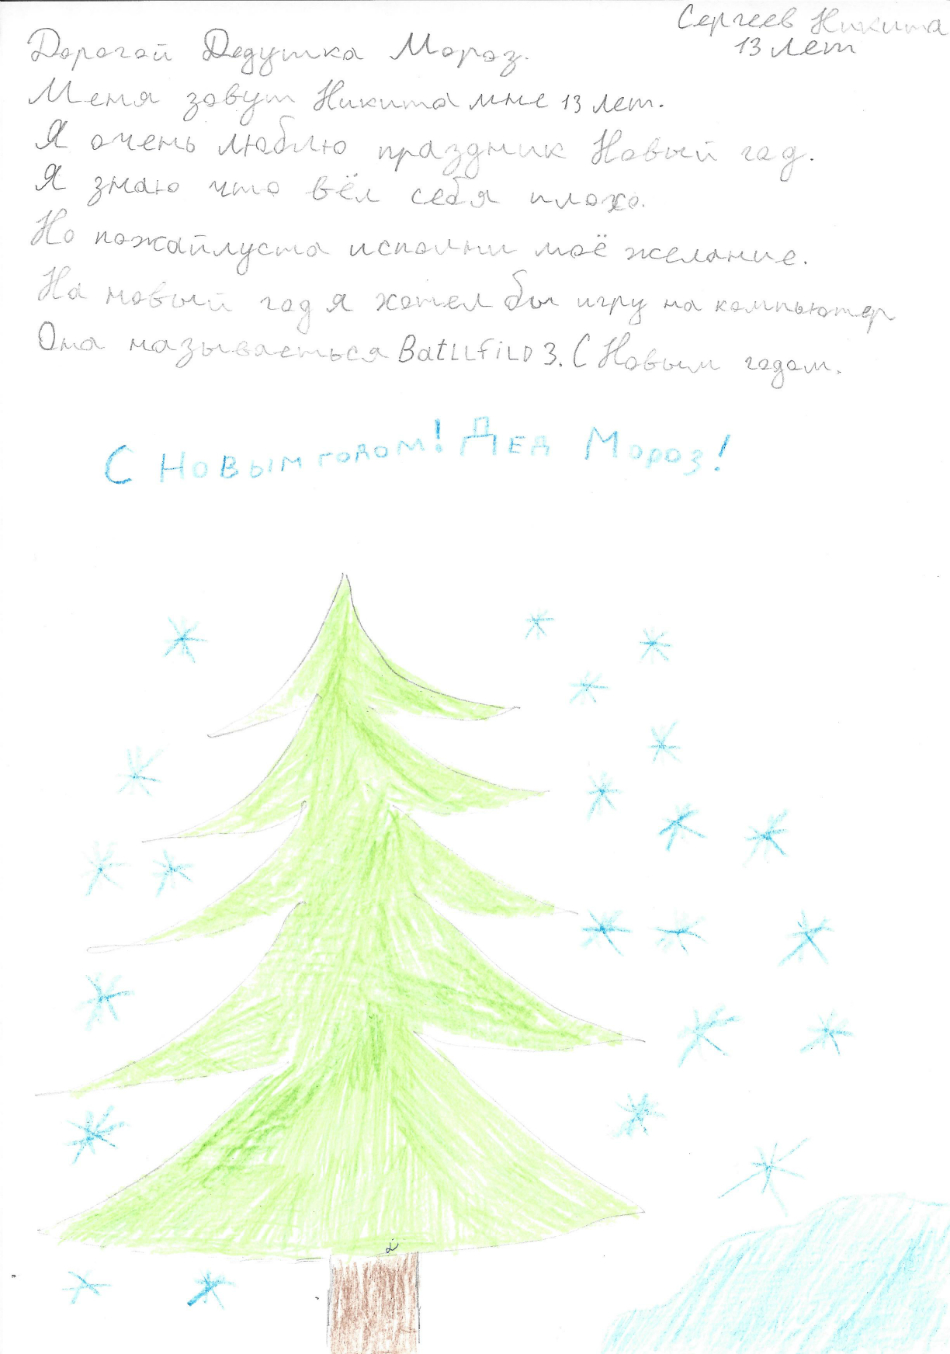 Сергеев Никита
13 лет
Дорогой Дедушка Мороз.
Меня зовут Никита мне 13 лет.
Я очень люблю праздник Новый год.
Я знаю что вёл себя плохо.
Но пожайлуста исполни моё желание.
На новый год я хотел бы игру на компьютер
Она называеться BatLLfiLD 3. С Новым годом.
С Новым годом! Дед Мороз!